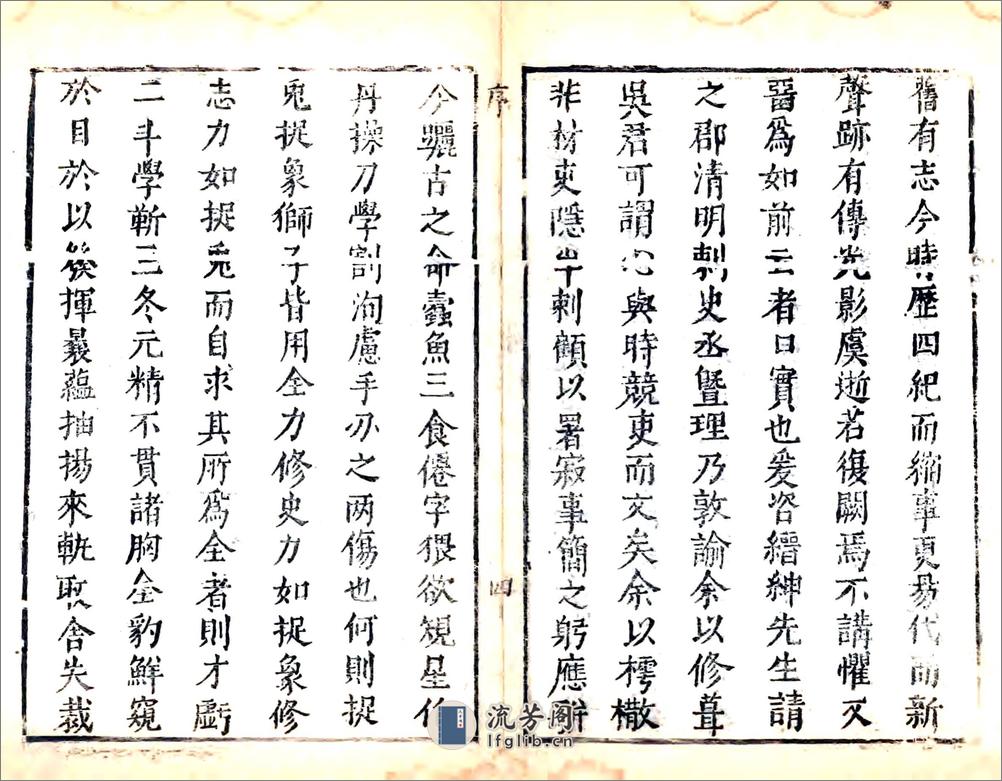 舊有志今時歷四紀而縮事更易代而新
聲跡有傳光影虞逝若復闕焉不講懼又
晉為如前云者口實也爰咨縉紳先生請
之郡清明刺史丞暨理乃敦諭余以修葺
吳君可謂心與時競吏而文矣余以樗檄
非材吏隱半刺顧以署寂事簡之躬應斯
序
四
今驪古之命蠹魚三食僊字猥欲規星
丹操刀學割洵慮手刅之两傷也何則捉
兎捉象獅子皆用全力修史力如捉象修
志力如捉兎而自求其所為全者則才虧
二斗學靳三冬元精不貫諸胸全豹鮮窺
於目於以發揮曩蘊抽揚來軌取舍失裁
流芳阁
lfglib.cn